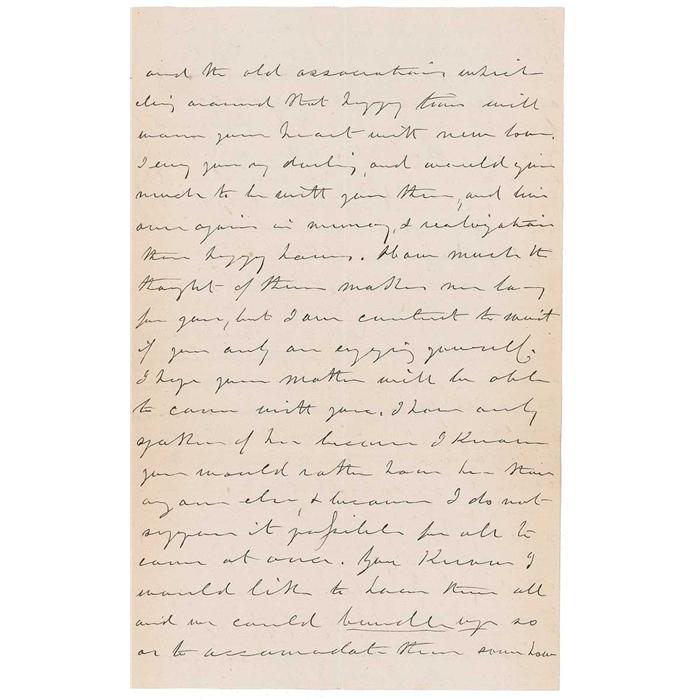 and the old associations which
cling around that happy time will
warm your heart with new love.
I envy you my darling, and would give
much to be with you then, and live
over again in memory, & realization
those happy hours. How much the
thought of them makes me long
for you, but I am content to wait
if you only are enjoying yourself.
I hope your mother will be able
to come with you. I have only
spoken of her because I know
you would rather have her than
anyone else, & because I do not
suppose it possible for all to
come at once. You know I
would like to have them all
and we could bundle up so
as to accomodate them somehow